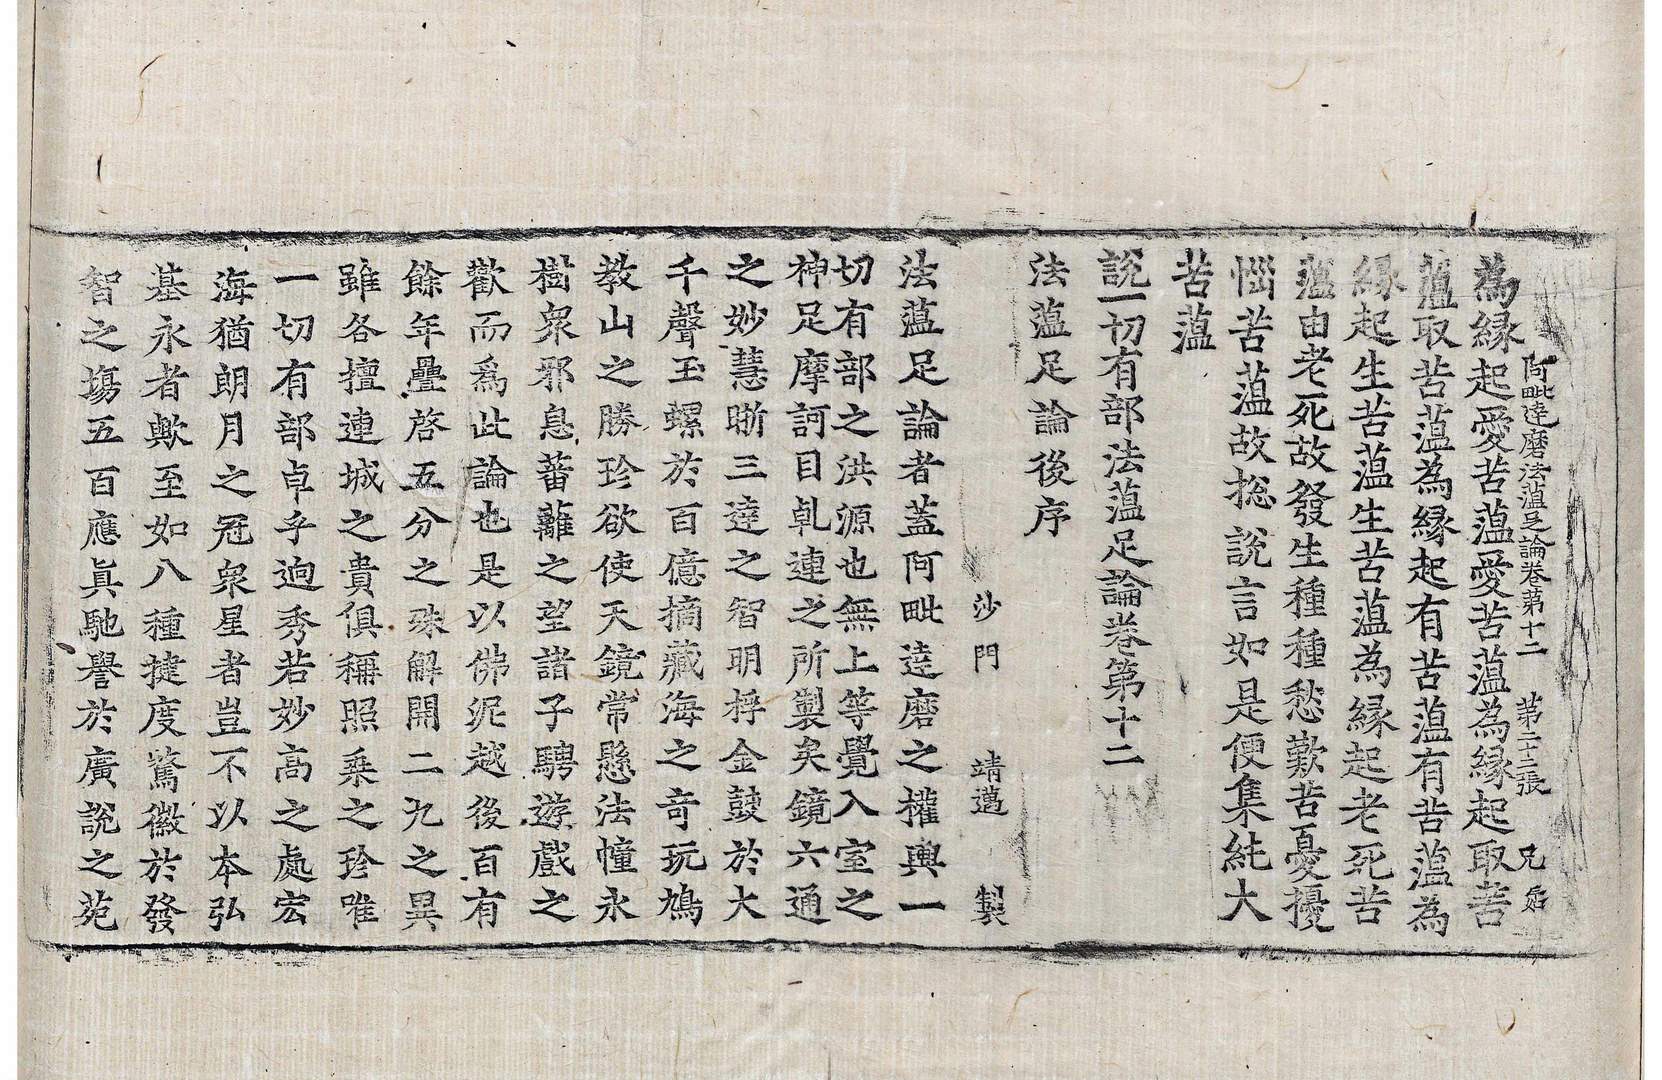 阿毗達磨法蘊足論卷苐十二　苐二十三張　兄
為緣起愛苦蘊愛苦蘊為緣起取苦
蘊取苦蘊為緣起有苦蘊有苦蘊為
緣起生苦蘊生苦蘊為緣起老死苦
蘊由老死故發生種種愁歎苦憂擾
惱苦蘊故捴說言如是便集純大
苦蘊
說一切有部法蘊足論卷第十二
法蘊足論後序
沙門　靖邁　製
法蘊足論者蓋阿毗達磨之權輿一
切有部之洪源也無上等覺入室之
神足摩訶目乹連之所製矣鏡六通
之妙慧晣三達之智明桴金鼓於大
千聲玉螺於百億摘藏海之奇玩鳩
教山之勝珍欲使天鏡常懸法幢永
樹衆邪息蕃蘺之望諸子騁遊戲之
歡而爲此論也是以佛泥越後百有
餘年疊啓五分之殊解開二九之異
雖各擅連城之貴俱稱照乘之珍唯
一切有部卓乎迥秀若妙高之處宏
海猶朗月之冠衆星者豈不以本弘
基永者歟至如八種揵度騖徽於發
智之塲五百應眞馳譽於廣說之菀